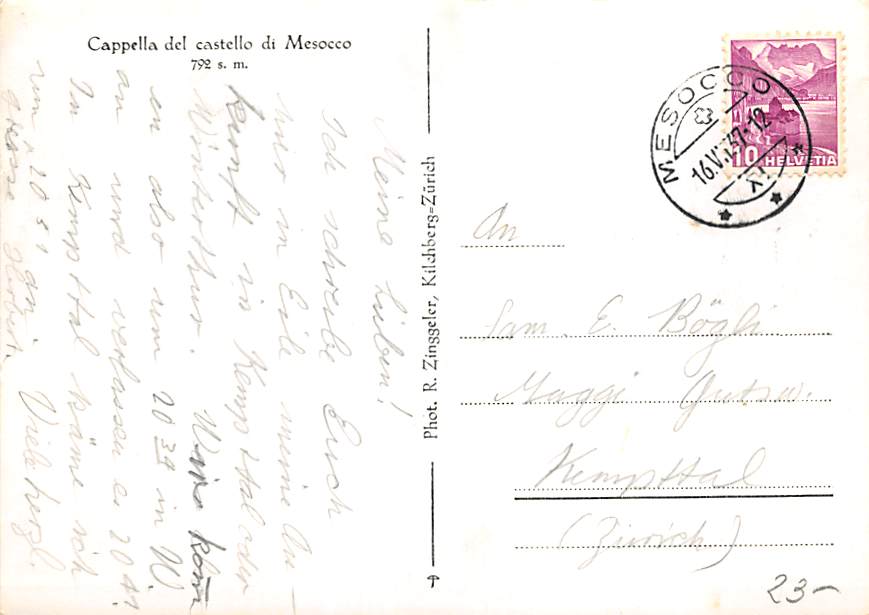 Cappella del castello di Mesocco
792 s. m.
Meine Lieben!
Ich schreibe Euch
nur in Eile meine An-
kunft in Kempttal oder
Winterthur. Wir kom̅
en also um 20 39 in W.
an und verlassen es 20 41.
In Kempttal käme ich
um 20 51 an. Viele herzl.
Grüsse
Phot. R. Zinggeler, Kilchberg-Zürich
MESOCCO
HELVETIA
10
An
Fam. E. Bögli
Maggi Gutsw.
Kempttal
(Zürich)
23-